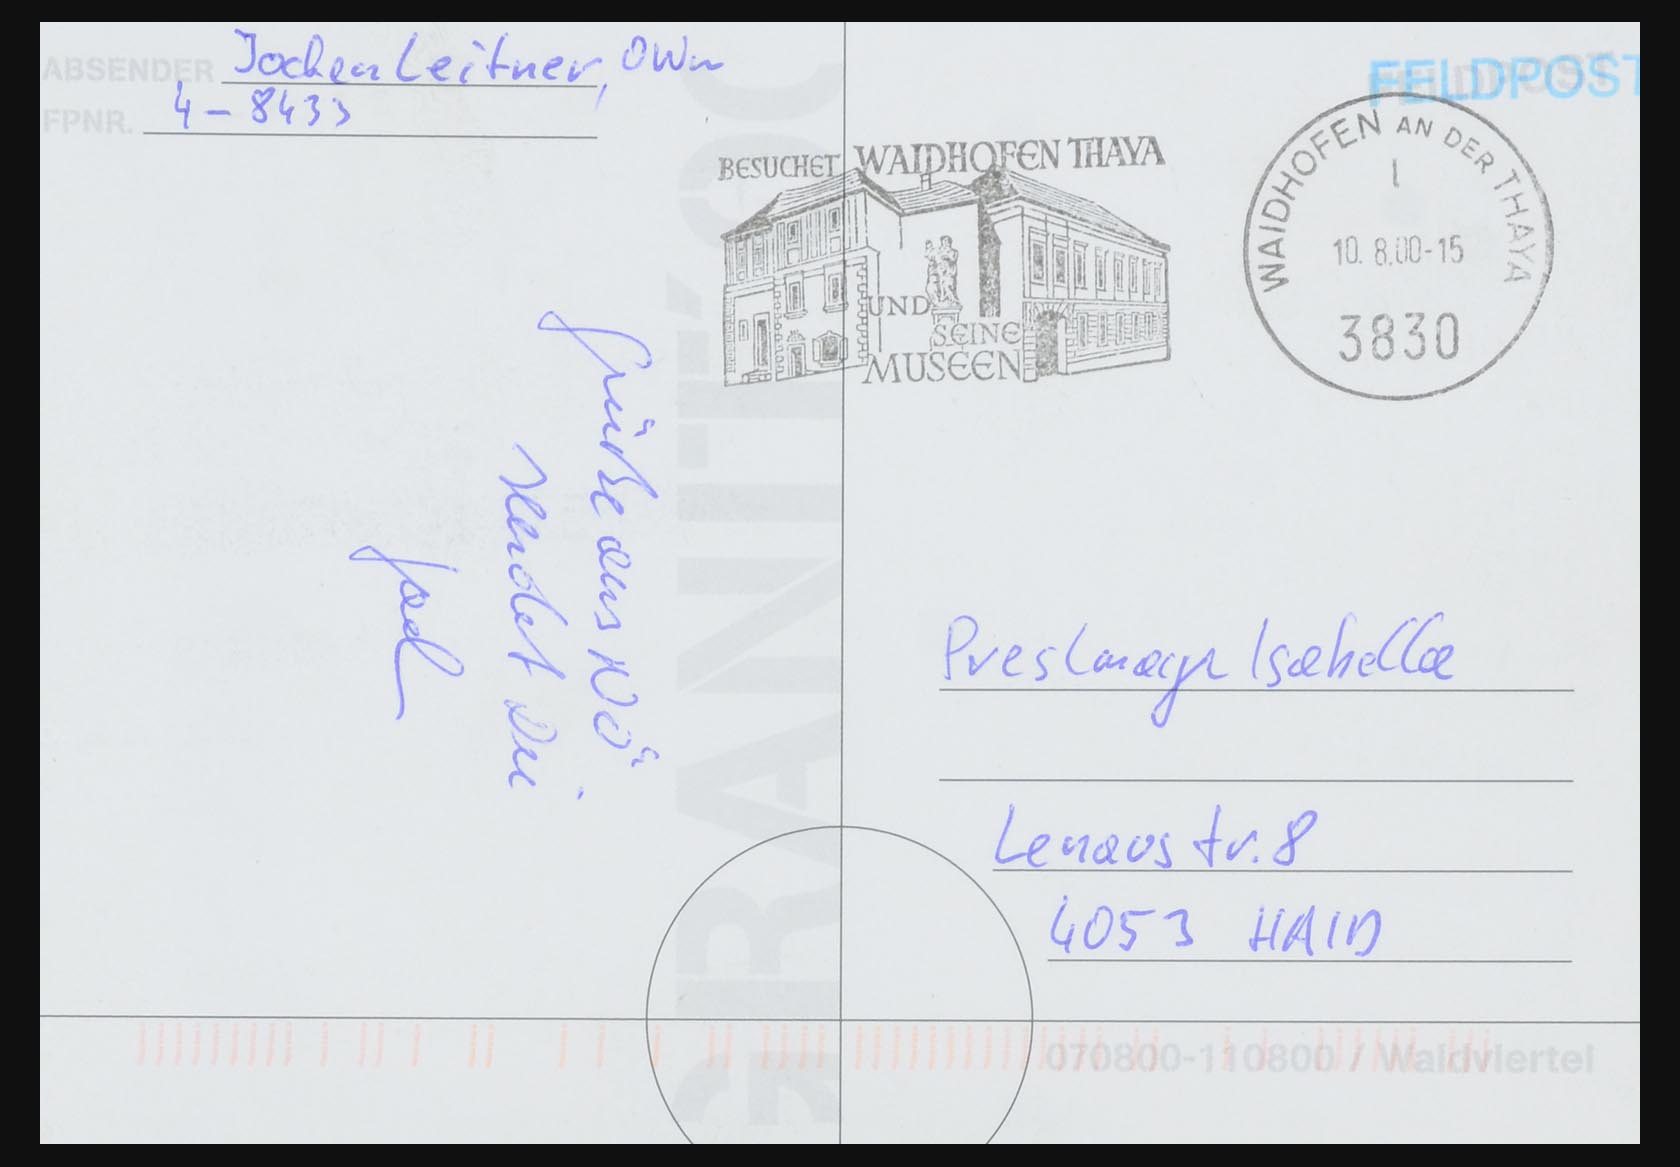 ABSENDER Jochen Leitner, OWm
FPNR. 4-8433
FELDPOST
BESUCHET WAIDHOFEN THAYA
UND
SEINE
MUSEEN
WAIDHOFEN AN DER THAYA
1
10.8.00-15
3830
Grüße aus NÖ
sendet Dir
Joel
Preslmayr Isabella
Lenaustr. 8
4053 HAID
070800-110800 / Waldviertel
GRANIT'00